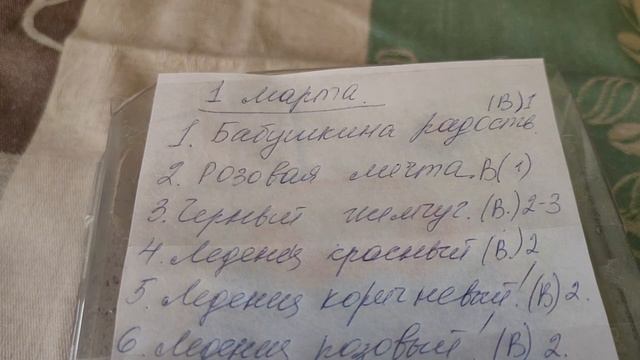 1 марта.
(В)1
1. Бабушкина радость.
2. Розовая мечта. В(1)
3. Черный жемчуг. (В.) 2-3
4. Леденец красный (В.) 2
5. Леденец коричневый! (В) 2.
6. Леденец розовый! (В) 2